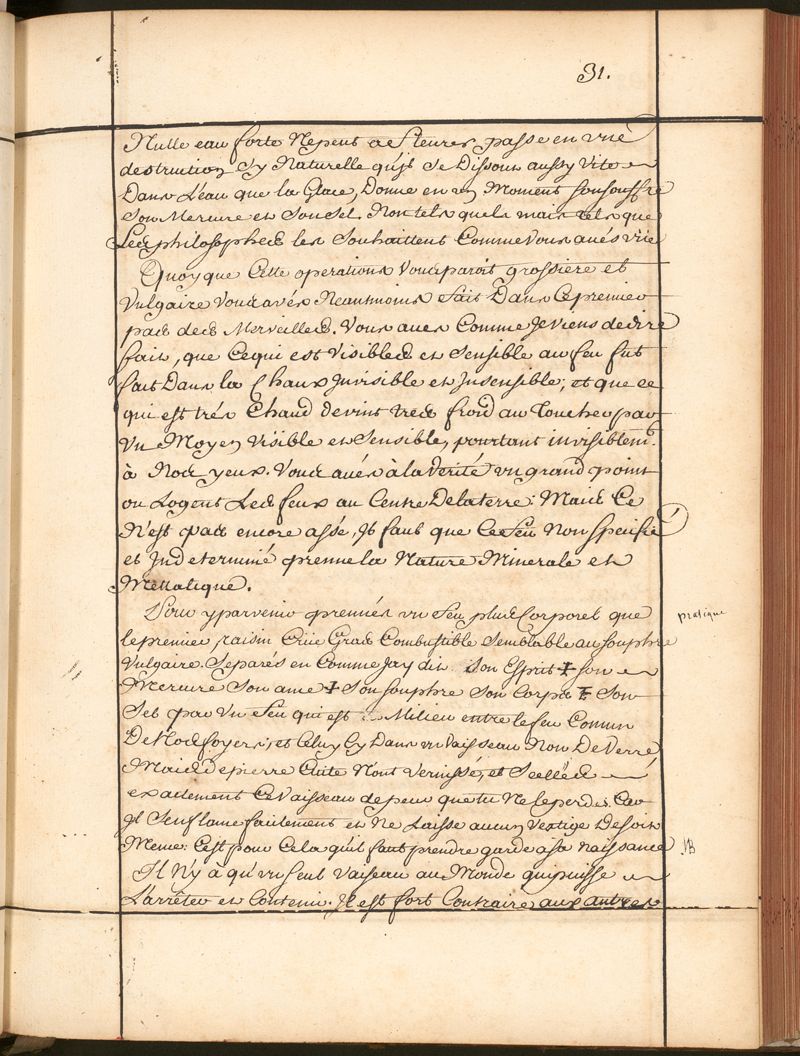 31.
Nulle eau forte Nepeut passe en une
destruction Sy Naturelle qu'Jl Se Dissout aussy Vite
Dans L'eau que la Glace, Donne en un Moment Son Souffre
Son Mercure et Son Sel. Non tels que le mais tels que
Les philosophes les Souhaittent Comme Vous avés vüe
Quoy que Cette operations Vous paroit grossiere et
Vulgaire Vous avés Neantmoins fait Dans Ce premier
pas des Merveilles. Vous aves Comme Je Viens de dire
fait, que Ce qui est Visibles et Sensible au feu fut
fait Dans la Chaux Jnvisible et Jnsensible; et que ce
qui est trés Chaud devint tres froid au Toucher par
Un Moyen Visible et Sensible, pourtant invisiblem.t
à Nos yeux. Vous avés à la Verité un grand point
ou Logent Les feux au Centre De la terre: Mais Ce
N'est pas encore assé, Jl faut que Ce feu Non Specifié
et Jndeterminé prenne la Nature Minerale et
Metallique.
Pour y parvenir prennés un feu plus Corporel que
le premier, raisin Crüe Gras Combustible Semblable au Souphre
Vulgaire. Separés en Comme Jay dit Son Esprit ‡ Son
Mercure Son ame ‡ Son Souphre Son Corps ‡ Son
Sel par Un feu qui est Milieu entre le feu Commun
De Nos foyers, et Celuy Cy Dans un Vaisseau Non De Verre
Mais de pierre Cuite Non Vernissé, et Scellés
exactement Ce Vaisseau de peur que tu Ne le perdes. Car
Jl S'enflame facilement et Ne Laisse aucun Vestige De Soit
Meme: C'est pour Cela qu'il faut prendre garde a Sa naissance
Il N'y à qu'un Seul Vaiseau au Monde qui puisse
L'arrêter et Contenir. Jl est fort Contraire aux autres
pratique
NB